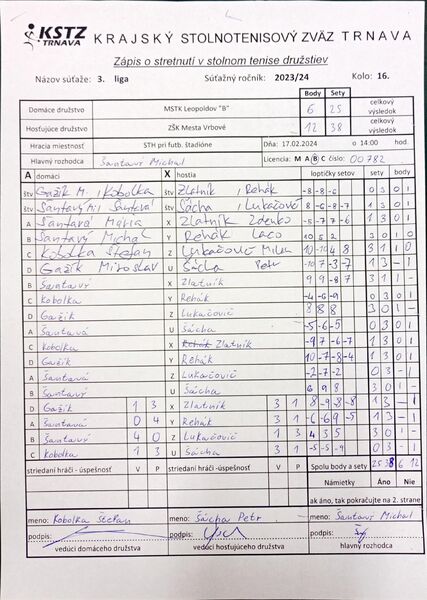 KSTZ TRNAVA KRAJSKÝ STOLNOTENISOVÝ ZVÄZ TRNAVA
Zápis o stretnutí v stolnom tenise družstiev
Názov súťaže: 3. liga Súťažný ročník: 2023/24 Kolo: 16.
Body Sety
Domáce družstvo MSTK Leopoldov "B" 6 25 celkový výsledok
Hosťujúce družstvo ZŠK Mesta Vrbové 12 38 celkový výsledok
Hracia miestnosť STH pri futb. štadióne Dňa: 17.02.2024 o 14:00 hod.
Hlavný rozhodca Šantavý Michal Licencia: M A B C číslo: 00782
A domáci X hostia loptičky setov sety body
štv Gažík M. / Kobolka štv Zlatník / Rehák -8 -8 -6 0 3 0 1
štv štv Šácha / Lukačovič 0 3 0 1
A Šantavá Mária X Zlatník Zdenko -5 -7 7 -6 1 3 0 1
B Šantavý Michal Y Rehák Laco 3 0 1 0
C Kobolka Štefan Z Lukačovič 10 -10 4 8 3 1 1 0
D Gažík Miroslav U Šácha Petr -10 7 -3 -7 1 3 - 1
B Šantavý X Zlatník 9 9 -8 7 3 1 1 -
C Kobolka Y Rehák -4 -6 -9 0 3 0 1
D Gažík Z Lukačovič 8 8 8 3 0 1
A Šantavá U Šácha -5 -6 -5 0 3 0 1
C Kobolka X Zlatník -9 7 -6 -7 1 3 0 1
D Gažík Y Rehák 10 -7 -8 -4 1 3 0 1
A Šantavá Z Lukačovič -2 -7 -2 0 3 - 1
B Šantavý U Šácha 6 9 8 3 0 1 -
D Gažík 1 3 X Zlatník 3 1 -9 8 -3 -8 1 3 - 1
A Šantavá 0 4 Y Rehák 3 1 -6 -6 9 -5 1 3 - 1
B Šantavý 4 0 Z Lukačovič 1 3 4 3 5 3 0 1 -
C Kobolka 1 3 U Šácha 3 1 -5 -5 -9 0 3 - 1
striedaní hráči - úspešnosť V P striedaní hráči -úspešnosť V P Spolu body a sety 25 38 6 12
Námietky Áno Nie
ak áno, tak pokračujte na 2. strane
meno: Kobolka Štefan meno: Šácha Petr meno: Šantavý Michal
podpis: podpis: podpis:
vedúci domáceho družstva vedúci hosťujúceho družstva hlavný rozhodca